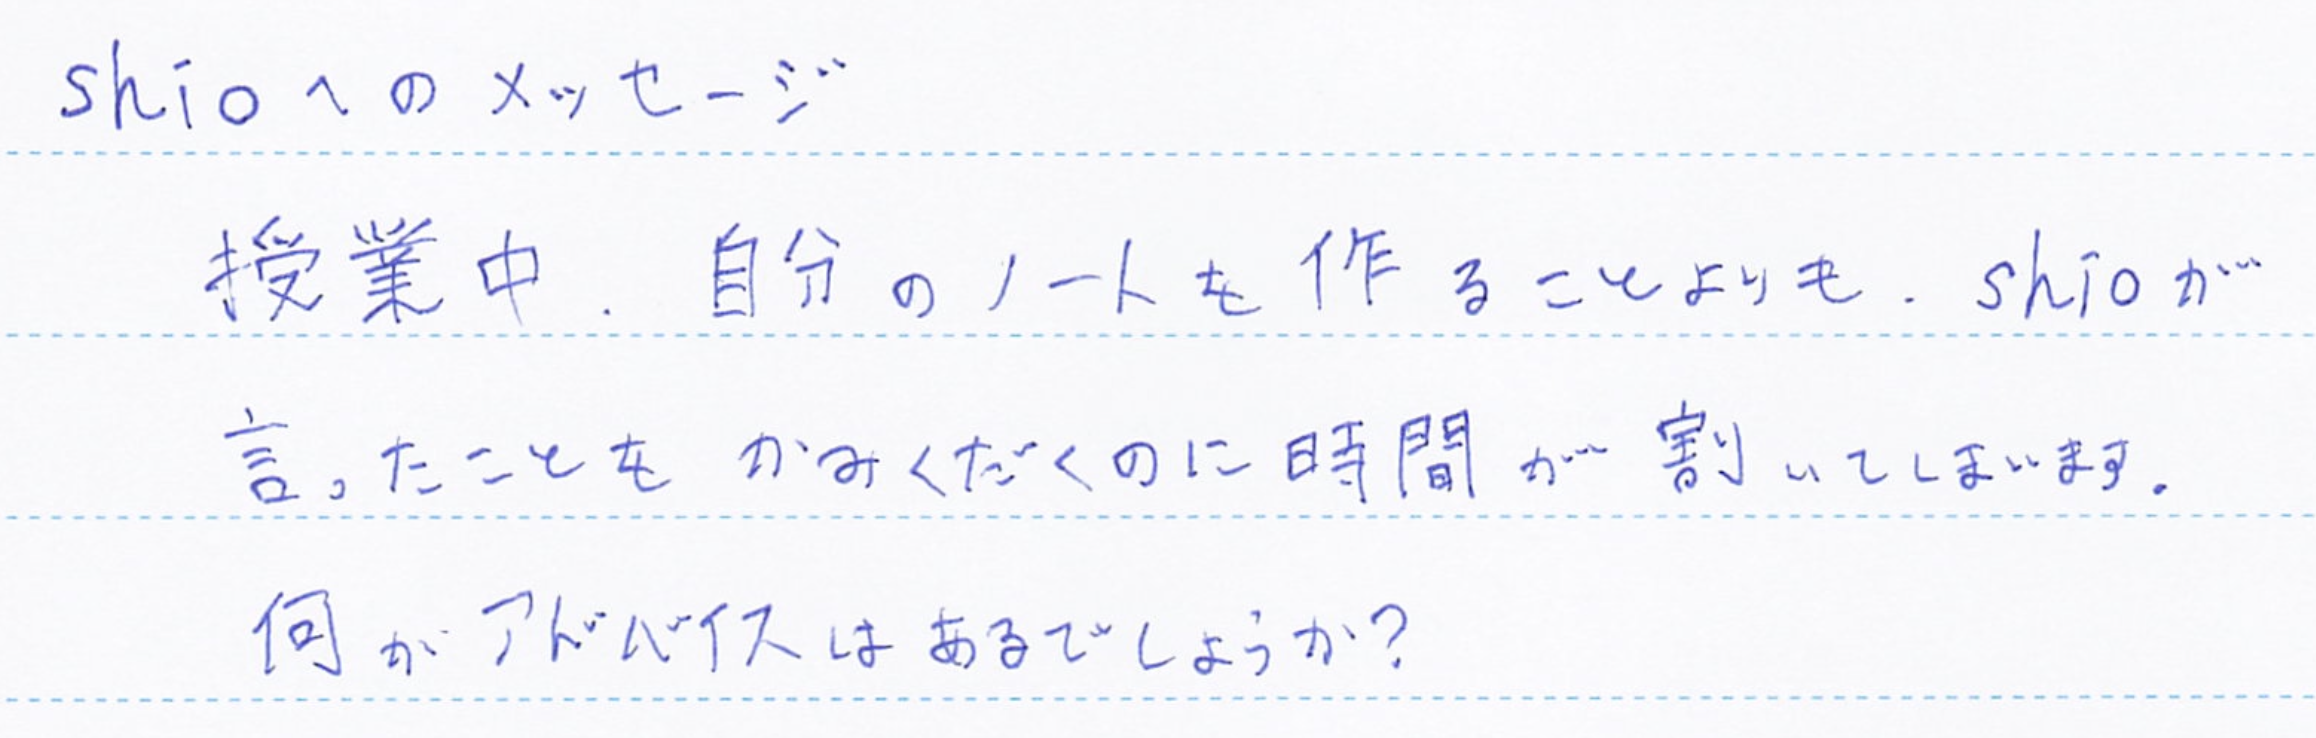 shioへのメッセージ
授業中、自分のノートを作ることよりも、shioが
言ったことをかみくだくのに時間が割いてしまいます。
何かアドバイスはあるでしょうか?